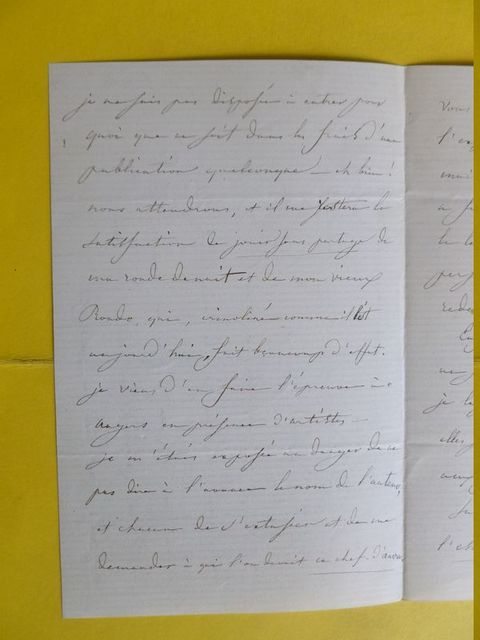 je ne suis pas disposée à entrer pour
quoi que ce soit dans les frais d'une
publication quelconque — eh bien!
nous attendrons, et il me restera la
satisfaction de jouir sans partage de
ma ronde de nuit et de mon vieux
Rondo, qui, crinoliné comme il l'est
aujourd'hui, fait beaucoup d'effet.
je viens d'en faire l'épreuve à
angers en présence d'artistes —
je m'étais exposée au danger de ne
pas dire à l'avance le nom de l'auteur,
et chacun de s'extasier et de me
demander à qui l'on devait ce chef d'œuvre
vous
l'
mais
a
le
per
rede
je le
elles
l'ch